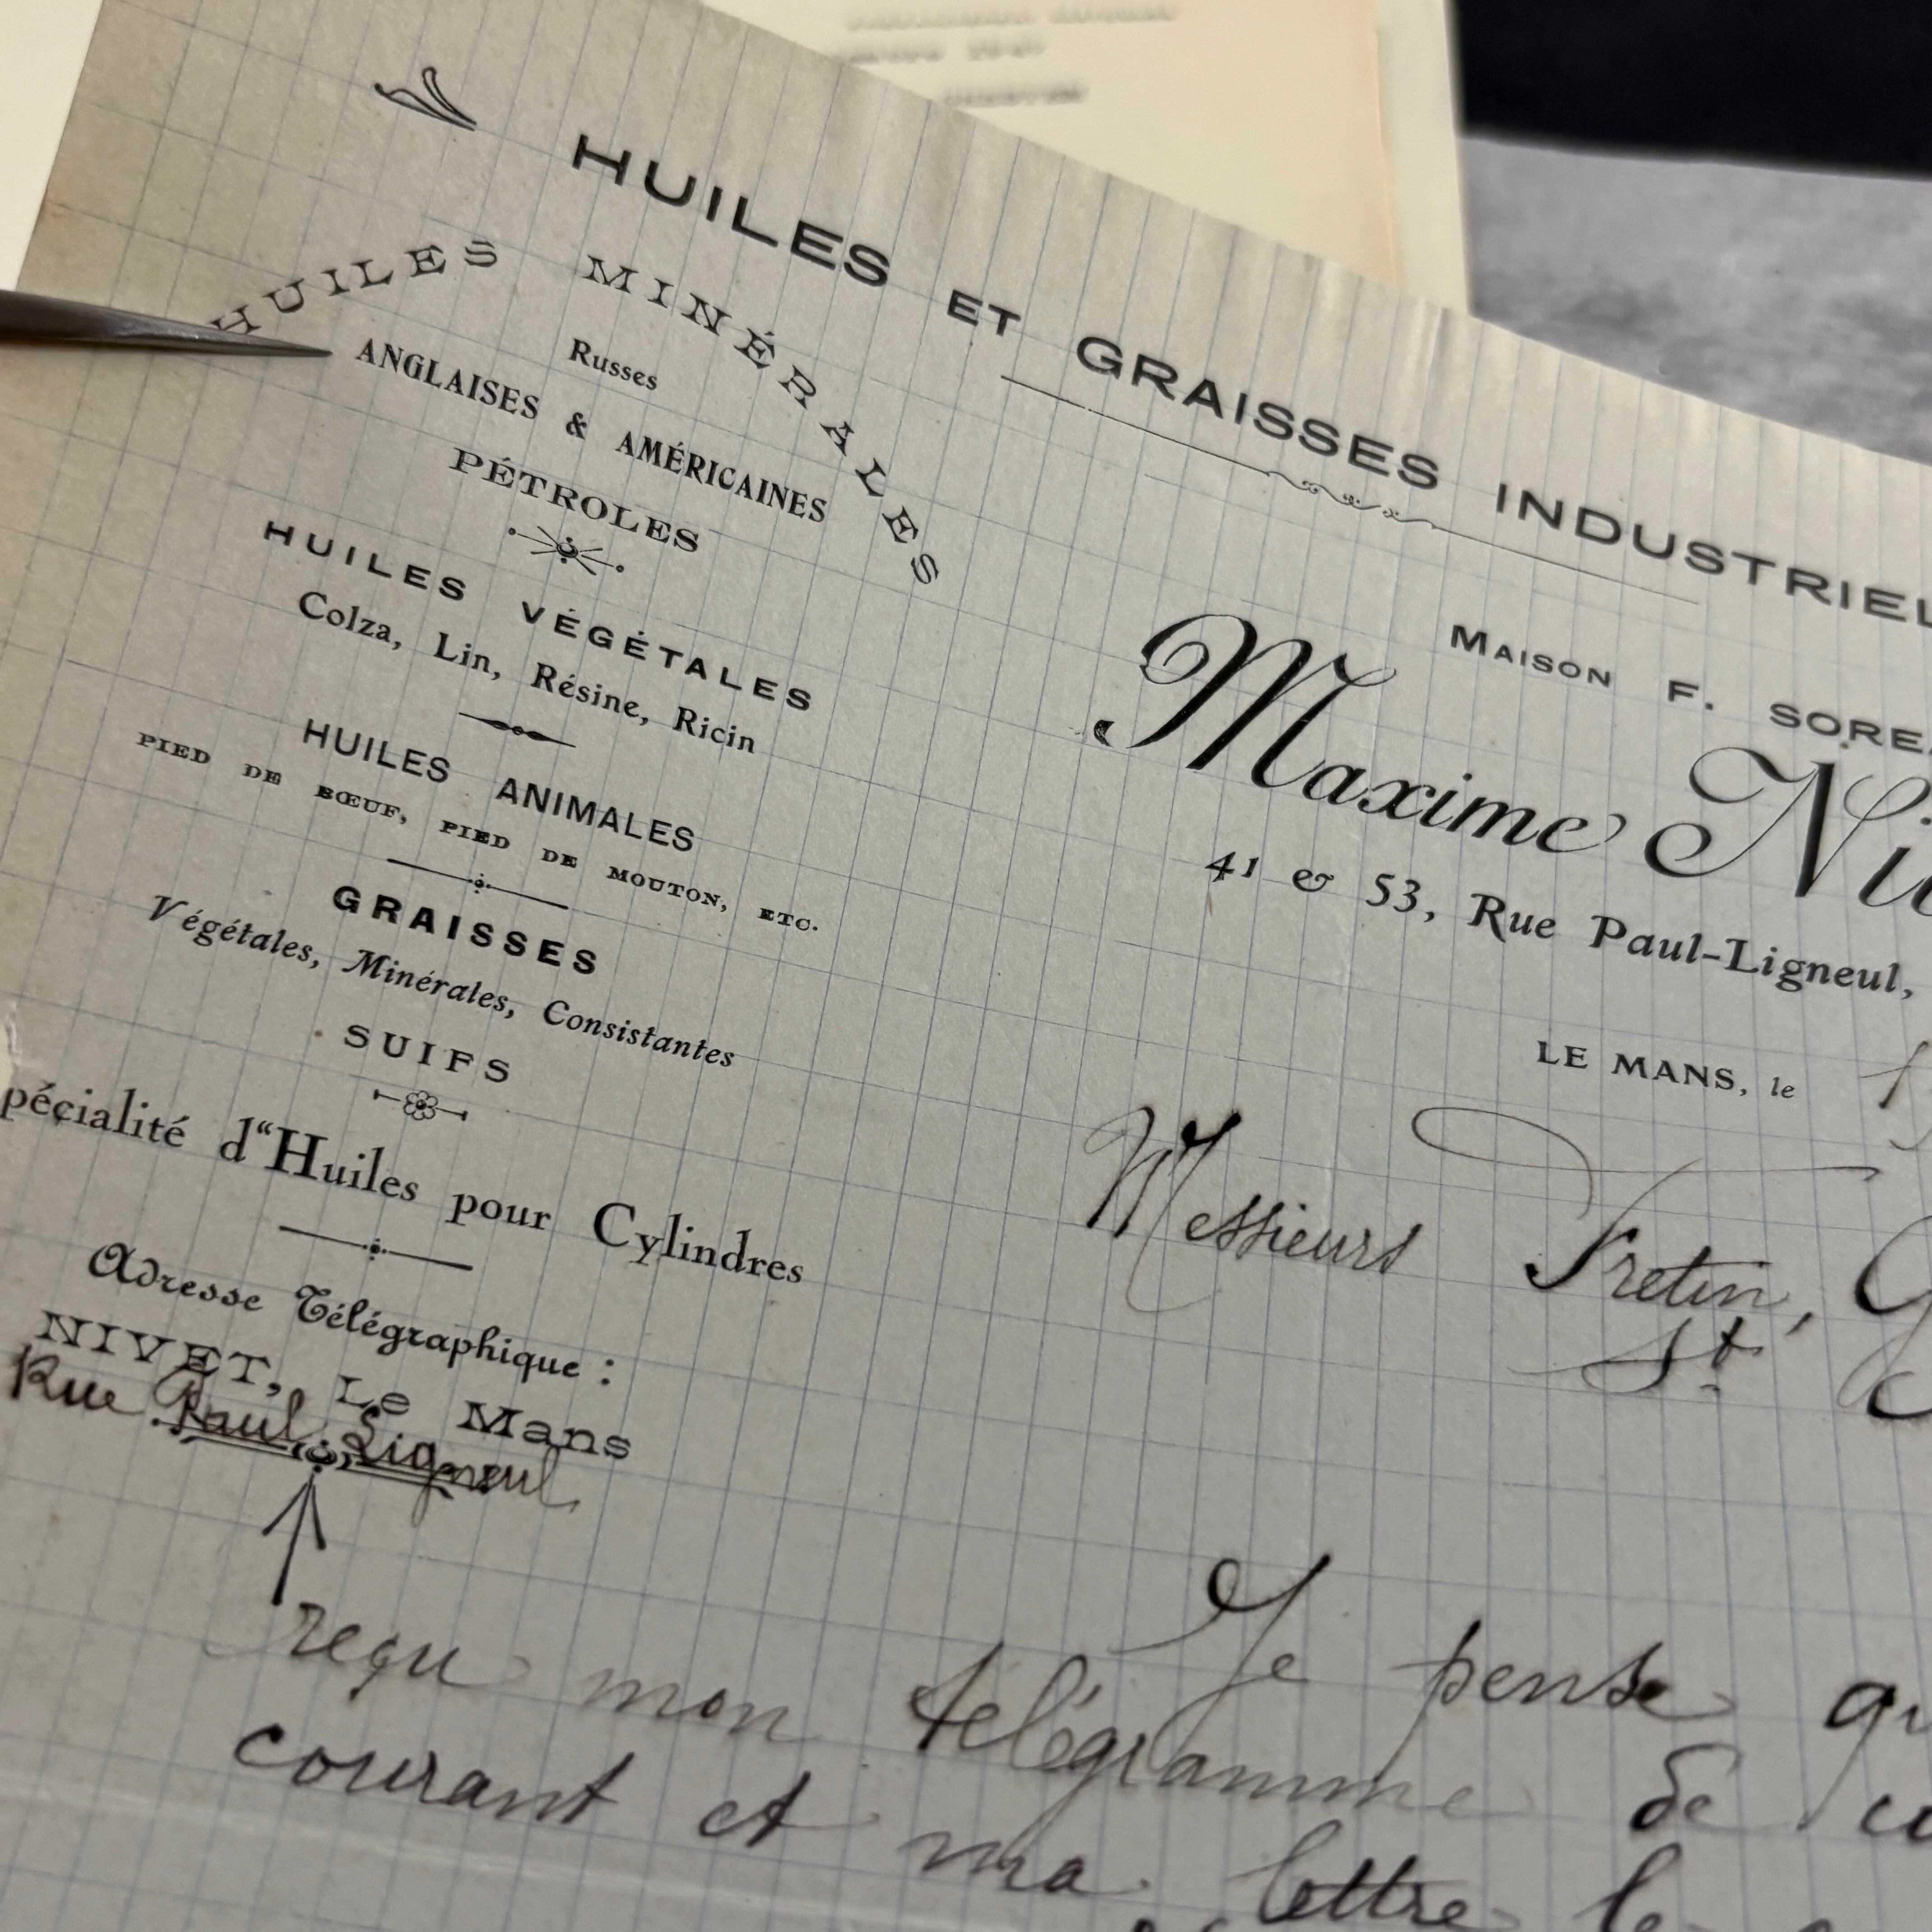 HUILES ET GRAISSES INDUSTRIEL
HUILES MINÉRALES
Russes
ANGLAISES & AMÉRICAINES
PÉTROLES
HUILES VÉGÉTALES
Colza, Lin, Résine, Ricin
HUILES ANIMALES
PIED DE BŒUF, PIED DE MOUTON, ETC.
GRAISSES
Végétales, Minérales, Consistantes
SUIFS
pécialité d'Huiles pour Cylindres
Adresse Télégraphique :
NIVET, Le Mans
Rue Paul Ligneul
MAISON F. SORE
Maxime Ni
41 & 53, Rue Paul-Ligneul,
LE MANS, le
Messieurs Fretin, G
St
Je pense qu
reçu mon télégramme de
courant et ma lettre